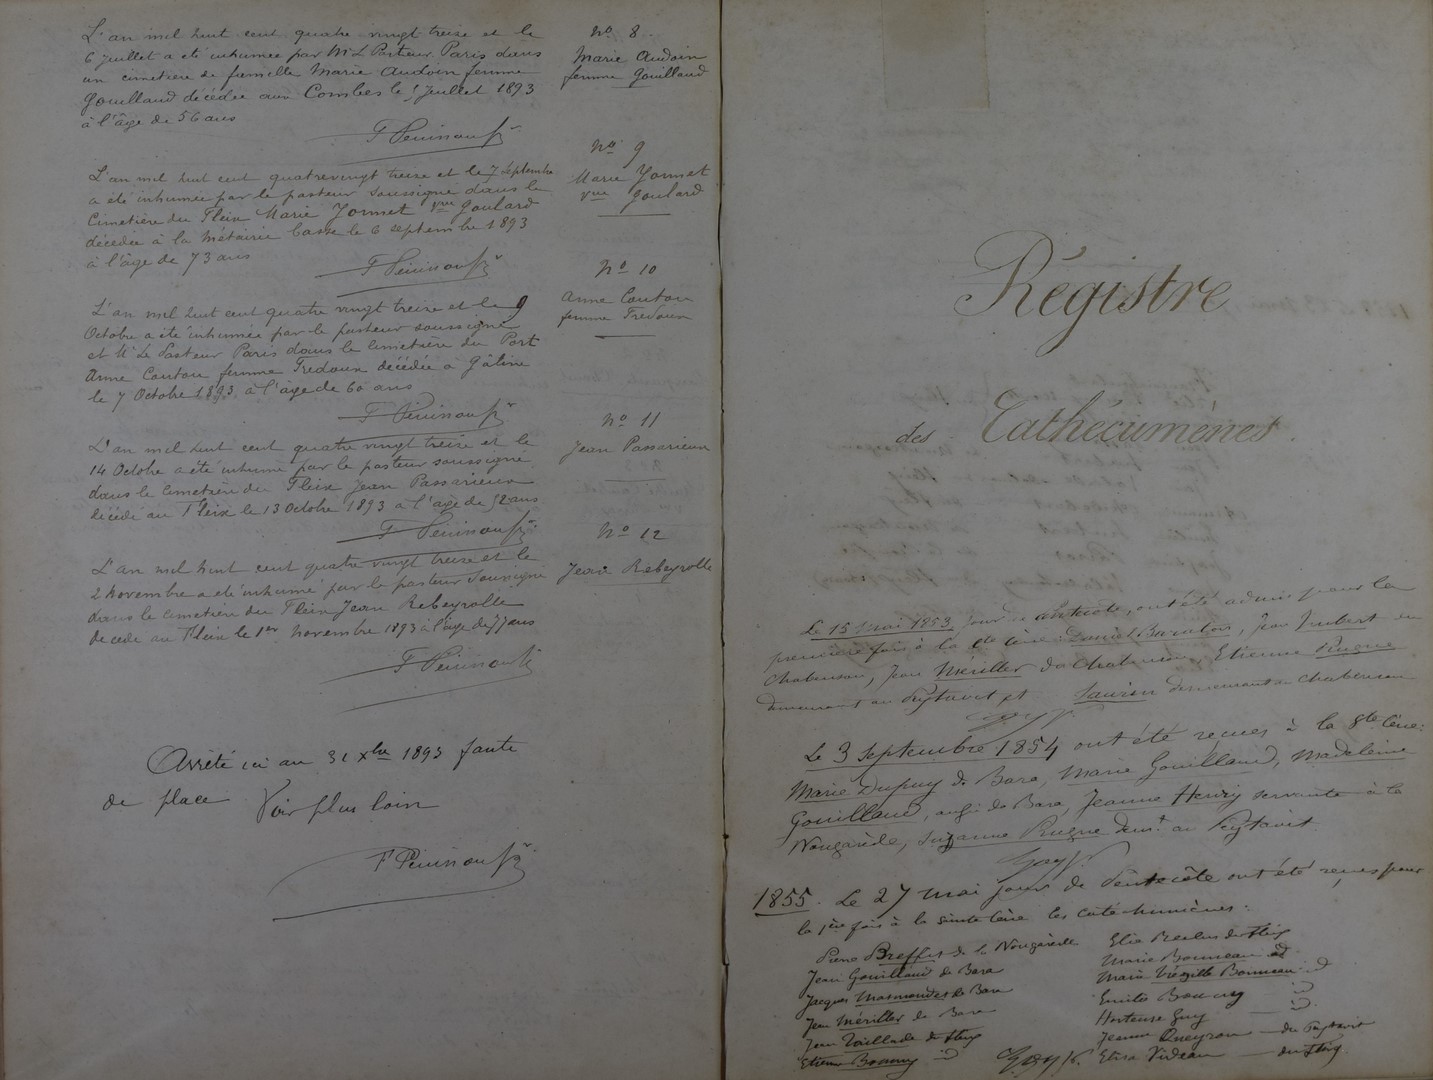 L'an mil huit cent quatre vingt treize et le
6 juillet a été inhumée par Mr L Pasteur Paris dans
un cimetière de famille Marie Audoin femme
Gouillaud décédée aux Combes le 5 Juillet 1893
à l'âge de 56 ans
No 8
Marie Audoin
femme Gouillaud
L'an mil huit cent quatrevingt treize et le 7 Septembre
a été inhumée par le pasteur soussigné dans le
Cimetière du Fleix Marie Jonnet Vve Goulard
décédée à la Métairie basse le 6 septembre 1893
à l'âge de 73 ans
No 9
Marie Jonnet
Vve Goulard
L'an mil huit cent quatre vingt treize et le 9
Octobre a été inhumée par le pasteur soussigné
et Mr Le Pasteur Paris dans le cimetière du Port
Anne Couton femme Tredoux décédée a Gâline
le 7 Octobre 1893 à l'âge de 60 ans
No 10
Anne Couton
femme Tredoux
L'an mil huit cent quatre vingt treize et le
14 Octobre a été inhumé par le pasteur soussigné
dans le cimetière du Fleix Jean Passarieux
décédé au Fleix le 13 Octobre 1893 à l'âge de 72 ans
No 11
Jean Passarieux
L'an mil huit cent quatre vingt treize et le
2 novembre a été inhumé par le pasteur Soussigné
dans le cimetière du Fleix Jean Rebeyrolle
décédé au Fleix le 1er Novembre 1893 à l'âge de 77 ans
No 12
Jean Rebeyrolle
Arrêté ici au 31 Xbre 1893 faute
de place Voir plus loin
Régistre
des Cathécumènes.
Le 15 Mai 1853, jour de Pentecôte, ont été admis pour la
première fois à la Ste Cène: Daniel Jean Imbert
Jean Mériller Etienne Rugne
demeurant au Peytavit et Saurin demeurant
Le 3 Septembre 1854 ont été reçues à la Ste Cène:
Marie Dupuy de Bara, Marie Gouillaud, Madeleine
Gouillaud, aussi de Bara, Jeanne Henry servante à la
Nougarède, Suzanne Rugne demt au Peytavit.
1855. Le 27 mai jour de Pentecôte ont été reçus pour
la 1ère fois à la Sainte Cène les catéchumènes:
Pierre Breffit de la Nougarède
Jean Gouillaud de Bara
Jacques Masmondet de Bara
Jean Mériller de Bara
Jean Taillade du Fleix
Etienne id
Elie Reclus du Fleix
Marie Bonneau id
Marie Bonneau id
Emilie id
Hortense Guy id
Jeanne Queyrou du Peytavit
Elisa Videau du Fleix.